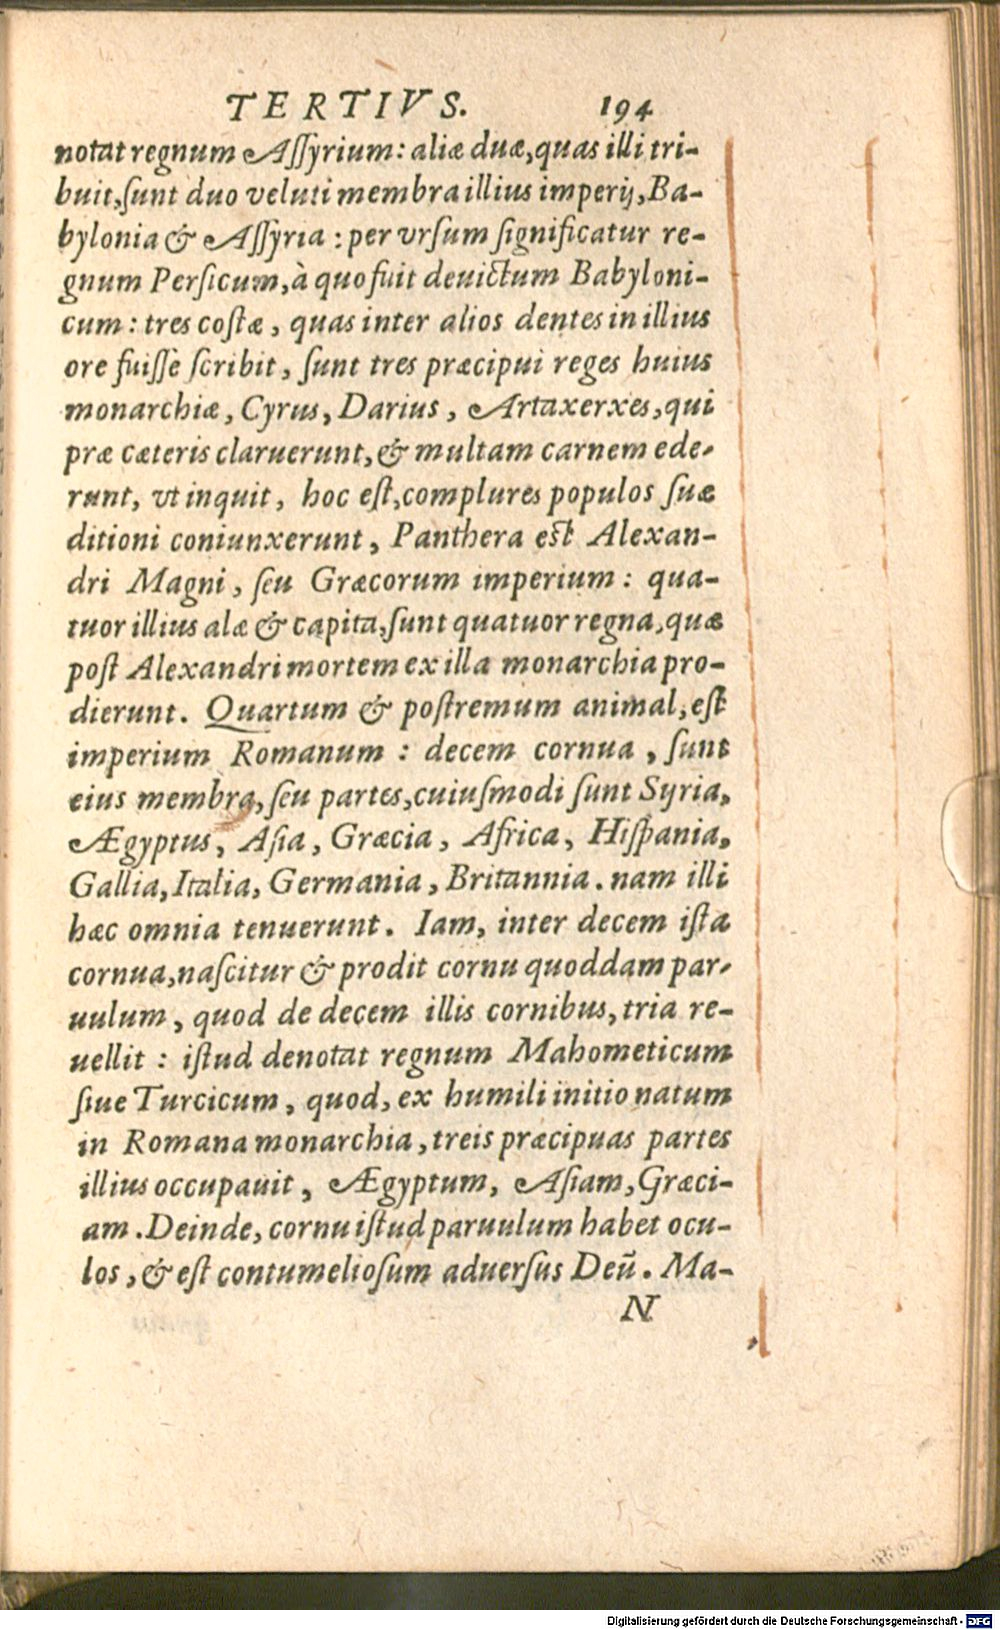 TERTIVS. 194
notat regnum Aſſyrium: aliæ duæ, quas illi tri-
buit, ſunt duo veluti membra illius imperij, Ba-
bylonia & Aſſyria: per vrſum ſignificatur re-
gnum Perſicum, à quo fuit deuictum Babyloni-
cum: tres coſtæ, quas inter alios dentes in illius
ore fuiſſe ſcribit, ſunt tres præcipui reges huius
monarchiæ, Cyrus, Darius, Artaxerxes, qui
præ cæteris claruerunt, & multam carnem ede-
runt, vt inquit, hoc eſt, complures populos ſuæ
ditioni coniunxerunt, Panthera eſt Alexan-
dri Magni, ſeu Græcorum imperium: qua-
tuor illius alæ & capita, ſunt quatuor regna, quæ
poſt Alexandri mortem ex illa monarchia pro-
dierunt. Quartum & poſtremum animal, eſt
imperium Romanum: decem cornua, ſunt
eius membra, ſeu partes, cuiuſmodi ſunt Syria,
Ægyptus, Aſia, Græcia, Africa, Hiſpania,
Gallia, Italia, Germania, Britannia. nam illi
hæc omnia tenuerunt. Iam, inter decem iſta
cornua, naſcitur & prodit cornu quoddam par-
uulum, quod de decem illis cornibus, tria re-
uellit: iſtud denotat regnum Mahometicum
ſiue Turcicum, quod, ex humili initio natum
in Romana monarchia, treis præcipuas partes
illius occupauit, Ægyptum, Aſiam, Græci-
am. Deinde, cornu iſtud paruulum habet ocu-
los, & eſt contumelioſum aduerſus Deū. Ma-
N
Digitalisierung gefördert durch die Deutsche Forschungsgemeinschaft - DFG